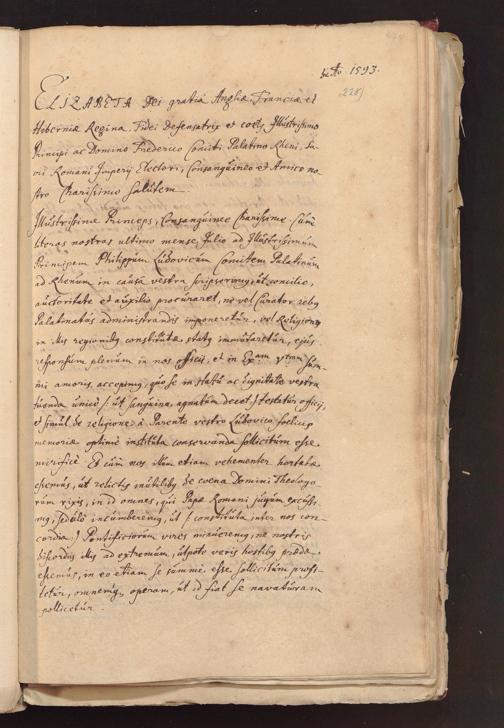 1593.
228)
ELIZABETA Dei gratia Angliæ, Franciæ et
Hiberniæ Regina Fidei Defensatrix et cœt. Illustrissimo
Principi ac Domino Frederico Comiti Palatino Rheni, Sa-
cri Romani Imperij Electori, Consanguineo et Amico no-
stro Charissimo Salutem
Illustrissime Princeps, Consanguinee Charissime. Cum
literas nostras ultimo mense Julio ad Illustrissimum
Principem Philippum Ludovicum Comitem Palatinum
ad Rhenum in causa vestra scripserimus, ut concilio,
auctoritate et auxilio procuraret, ne vel Curatoribus
Palatinatus administrandis imponeretur, vel Religionis
in illis regionibus constitutæ status immutaretur, ejus
responsum plenum in nos officij, et in Exam. vram sum-
mi amoris accepimus, quo se in statu ac dignitate vestra
tuenda unice (ut sanguine agnatum decet) testatur officij,
et simul de religione à Parente vestro Ludovico fœlicis
memoriæ optime instituta conservanda sollicitum esse
mirificè. Et cum nos illum etiam vehementer hortatæ
essemus, ut relictis inutilibus de cœna Domini Theologo-
rum rixis, in id omnes, qui Papæ Romani jugum excussi-
mus, sedulò incumberemus, ut (constituta inter nos con-
cordia) Pontificiorum vires minueremus, ne nostris
discordiis illis ad extremum, utpote veris hostibus prædæ
essemus, in eo etiam se summè esse sollicitum profi-
tetur, omnemque operam, ut id fiat se navaturum
pollicetur.